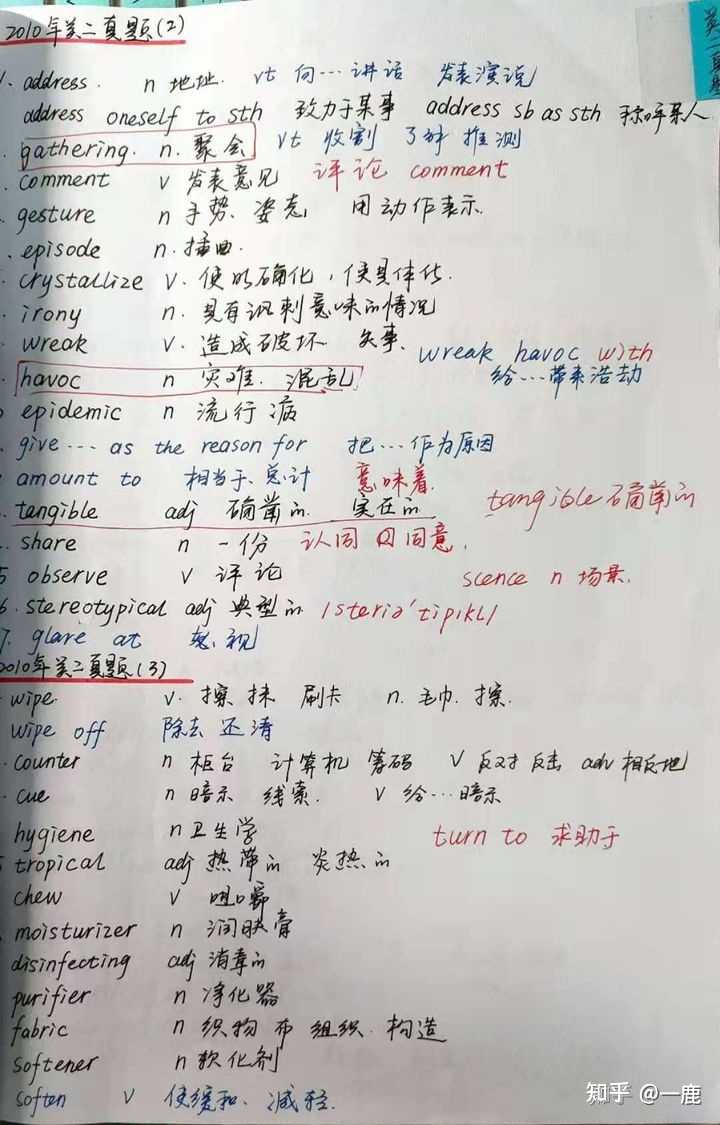 2010年英二真题(2)
address. n 地址. vt 向…讲话 发表演说
address oneself to sth 致力于某事 address sb as sth 称呼某人
gathering. n. 聚会 vt 收割 了解 推测
comment v 发表意见 评论 comment
gesture n 手势. 姿态 用动作表示.
episode n. 插曲.
crystallize v. 使明确化, 使具体化.
irony n. 具有讽刺意味的情况
wreak v. 造成破坏 失事. wreak havoc with
havoc n 灾难. 混乱 给…带来浩劫
epidemic n 流行病
give … as the reason for 把…作为原因
amount to 相当于、总计 意味着.
tangible adj 确凿的 实在的 tangible 确凿的
share n 一份 认同 同意.
5 observe v 评论 scence n 场景.
6. stereotypical adj 典型的 /steriə'tipikl/
7. glare at 怒视
2010年英二真题(3)
wipe. v. 擦 抹 刷卡 n. 毛巾. 擦.
wipe off 除去 还清
counter n 柜台 计算机 筹码 v 反对 反击 adv 相反地
cue n 暗示 线索. v 给…暗示
hygiene n 卫生学 turn to 求助于
tropical adj 热带的 炎热的
chew v 咀嚼
moisturizer n 润肤膏
disinfecting adj 消毒的
purifier n 净化器
fabric n 织物 布 组织. 构造
softener n 软化剂
soften v 使缓和. 减轻.
知乎 @一鹿